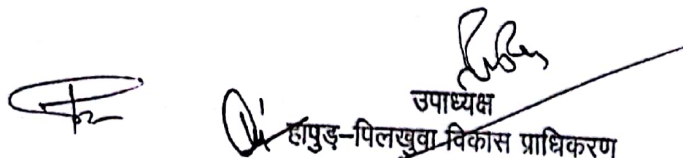 उपाध्यक्ष
हापुड़-पिलखुवा विकास प्राधिकरण